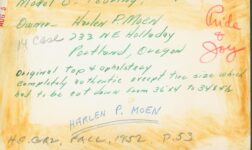 Model O Touring
Owner - Harlen P. Moen
My Case 233 N E Holladay
Portland, Oregon
Pride
&
Joy
Original Top & upholstery
completely authentic except tire size which
had to be cut down from 36x4 to 34x4½
HARLEN P. MOEN
H.C. GAZ. FALL, 1952 P. 53